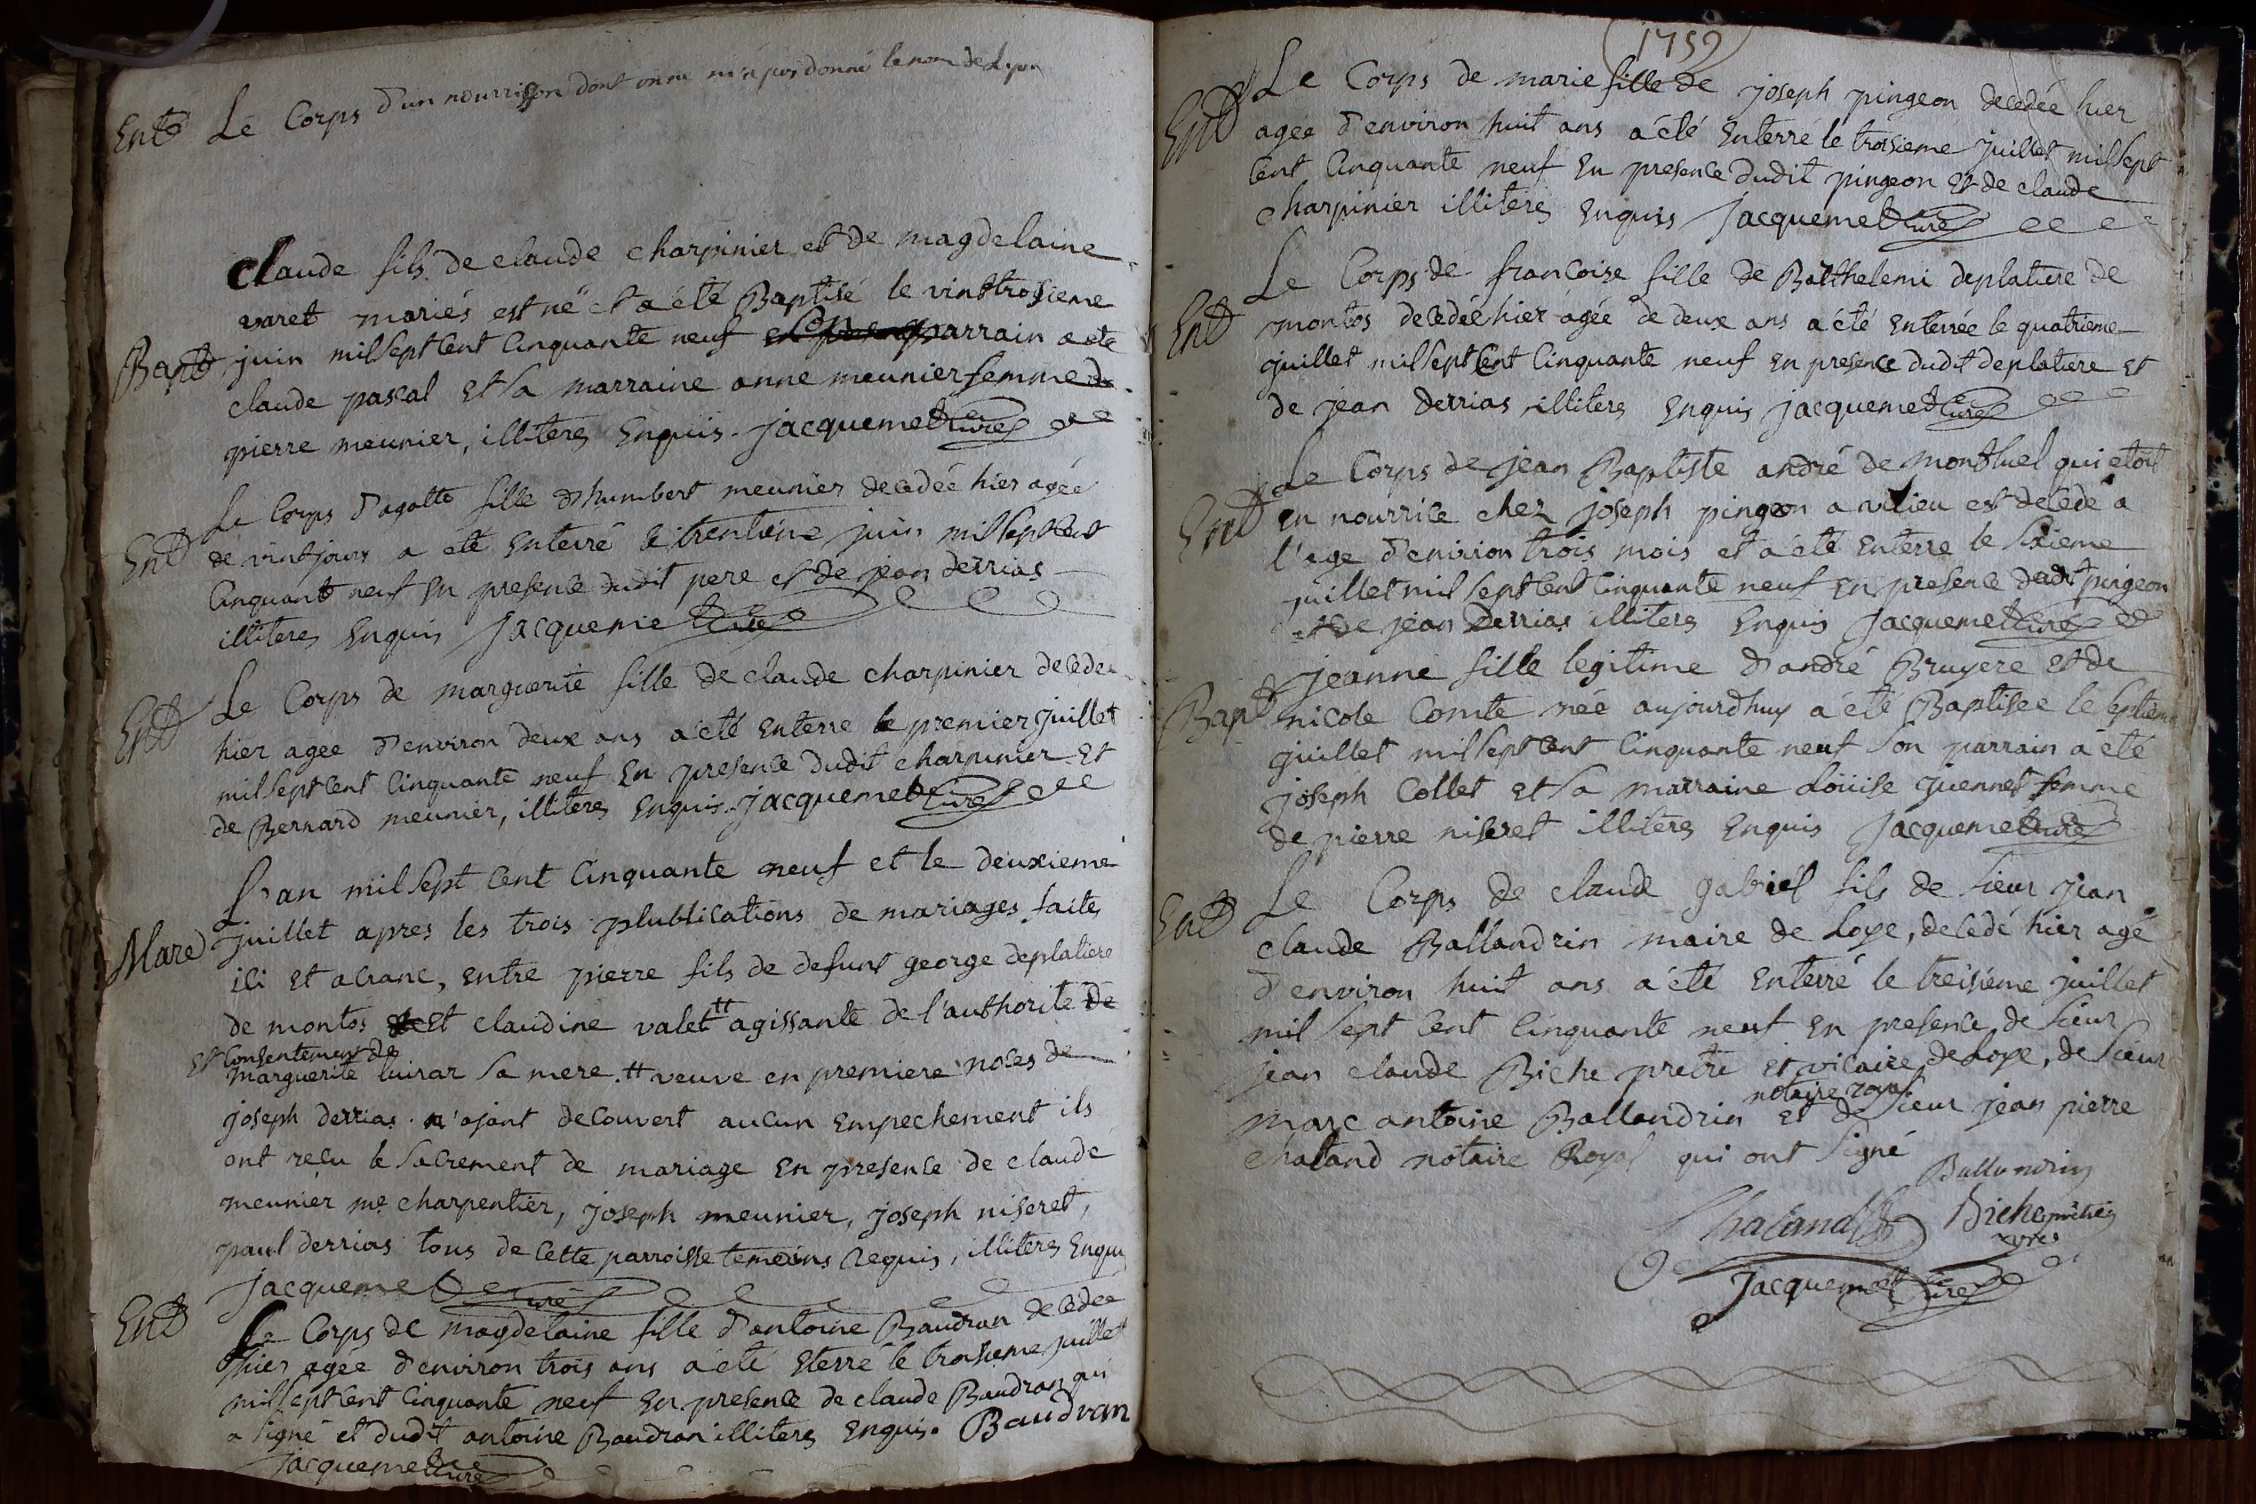 Ent Le Corps d'un nourrisson dont on ne m'a pas donné le nom de Lyon
claude fils de claude charpinier et de magdelaine
varet mariés est né et a été Baptisé le vint troisieme
Bapt juin mil sept cent cinquante neuf son parrain a eté
claude pascal et sa marraine anne meunier femme de
pierre meunier, illiteres Enquis. jacquemet curé
Le Corps d'agatte fille d'humbert meunier decedée hier agée
Ent de vint jours a eté enterré le trentiéne juin mil sept cent
cinquante neuf en presence dudit pere et de jean derrias
illiteres Enquis jacquemet curé
Le Corps de marguerite fille de claude charpinier decedée
Ent hier agée d'environ deux ans a eté enterre le premier juillet
mil sept cent cinquante neuf En presence dudit charpinier Et
de Bernard meunier, illiteres Enquis. jacquemet curé
L'an mil sept cent cinquante neuf et le deuxieme
Mare juillet apres les trois plublications de mariages faites
ici et a crane, entre pierre fils de defunt george deplatiere
de montos Et claudine valet # agissante de l'authorite de
et consentement de
marguerite luirar sa mere. # veuve en premiere noces de
joseph derrias. n'ajant decouvert aucun empechement ils
ont reçu le sacrement de mariage en presence de claude
meunier me charpentier, joseph meunier, joseph niseret,
paul derrias tous de cette parroisse temoins requis, illiteres Enquis
jacquemet curé
Ent Le Corps de magdelaine fille d'antoine Baudran decedée
hier agée d'environ trois ans a eté eterré le troisieme juillet
mil sept cent cinquante neuf En presence de claude Baudran qui
a signé et dudit antoine Baudran illiteres Enquis. Baudran
jacquemet curé
1759
Le Corps de marie fille de joseph pingeon decedée hier
Ent agée d'environ huit ans a été Enterré le troisieme juillet mil sept
cent cinquante neuf En presence dudit pingeon et de claude
charpinier illiteres enquis jacquemet curé
Le Corps de francoise fille de Barthelemi deplatiere de
Ent montos decedée hier agée de deux ans a été enterrée le quatrieme
juillet mil sept cent cinquante neuf en presence dudit deplatiere et
de jean derrias illiteres Enquis jacquemet curé
Le Corps de jean Baptiste andré de montluel qui etoit
Ent en nourrice chez joseph pingeon a vilieu est decedé a
l'age d'environ trois mois et a eté enterre le sixieme
juillet mil sept cent cinquante neuf en presence dudit pingeon
et de jean derrias illiteres Enquis jacquemet curé
jeanne fille legitime d'andré Bruyere et de
Bapt nicole Comte née aujourdhuy a été Baptisée le septieme
juillet mil sept cent cinquante neuf son parrain a été
joseph Collet et sa marraine Loüise juennet femme
de pierre niseret illiteres Enquis jacquemet curé
Le Corps de claude gabriel fils de sieur jean
Ent claude Ballandrin maire de Loye, decedé hier agé
d'environ huit ans a été enterré le treisiéme juillet
mil sept cent cinquante neuf en presence de sieur
jean claude Biche pretre et vicaire de Loye, de sieur
notaire royal
marc antoine Ballandrin et de sieur jean pierre
chaland notaire Royal qui ont signé
Ballandrin
Chaland Biche prêtre
jacquemet curé